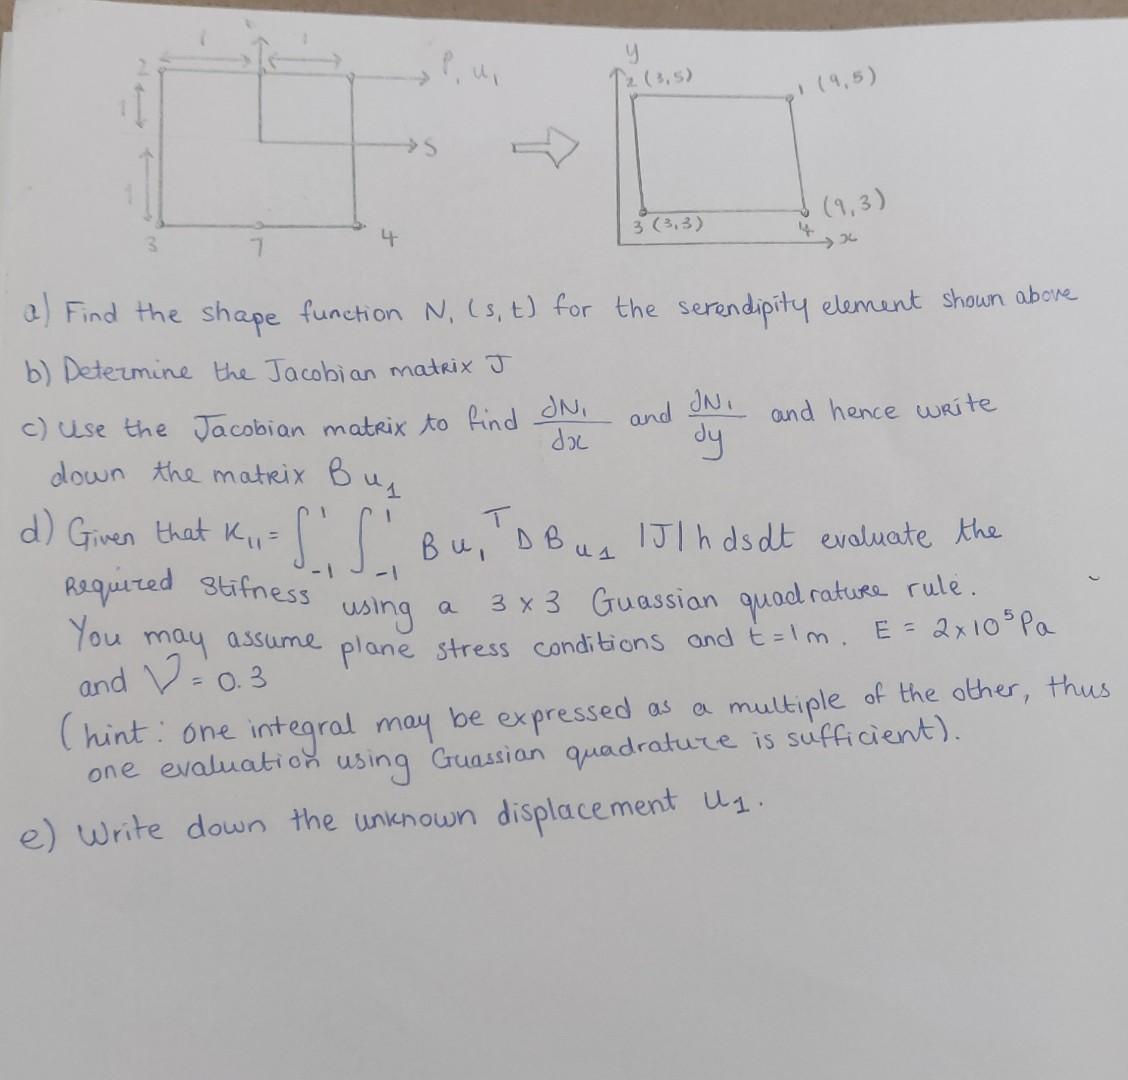 1 1
2 P, u1
1
S
1
3 7 4
y
2 (3,5) 1 (9,5)
3 (3,3) 4 (9,3)
x
a) Find the shape function N1 (s, t) for the serendipity element shown above
b) Determine the Jacobian matrix J
c) Use the Jacobian matrix to find ∂N1/∂x and ∂N1/∂y and hence write
down the matrix B u1
d) Given that K11 = ∫₋₁¹ ∫₋₁¹ B u1ᵀ D B u1 |J| h ds dt evaluate the
Required Stifness using a 3 x 3 Guassian quadrature rule.
You may assume plane stress conditions and t = 1m. E = 2x10⁵ Pa
and V = 0.3
(hint: one integral may be expressed as a multiple of the other, thus
one evaluation using Guassian quadrature is sufficient).
e) Write down the unknown displacement u1.